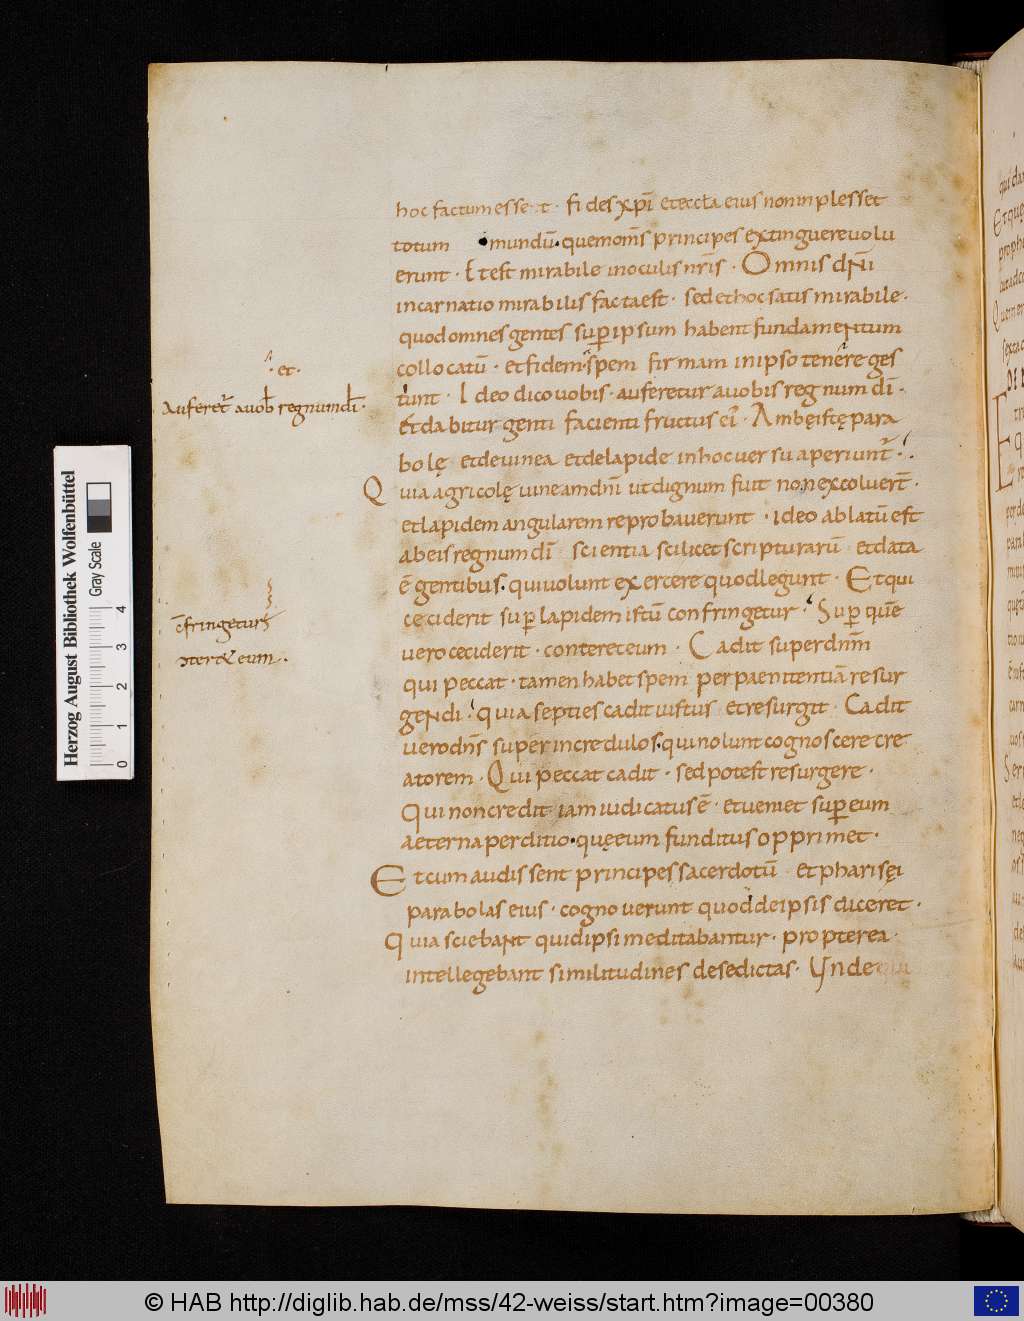 hoc factum esse t · fides xp̄i et eccl̄a eius non inplesset
totum mundū · quem om̄s principes extinguere uolu
erunt · Et est mirabile in oculis nr̄is · Omnis dn̄i
incarnatio mirabilis facta est · sed et hoc satis mirabile ·
quod omnes gentes sup̄ ipsum habent fundamentum
collocatū · et fidem · spem firmam in ipso tenere ges
tiunt · Ideo dico uobis · auferetur a uobis regnum dī ·
· et ·
Auferet̄ a uob̄ regnum dī ·
Et dabitur genti facienti fructus eī · Ambę istę para
bolę et de uinea et de lapide in hoc uersu aperiunt̄ ·
Quia agricolę uineam dn̄i ut dignum fuit non excoluer̄t ·
et lapidem angularem reprobauerunt · ideo ablatū est
ab eis regnum dī scientia scilicet scripturarū et data
ē gentibus · qui uolunt exercere quod legunt · Et qui
ceciderit sup̄ lapidem istū confringetur · Sup̄ quē
cfringetur
uero ceciderit · conteret eum · Cadit super dn̄m
teret eum ·
qui peccat · tamen habet spem per paenitentiā resur
gendi · quia septies cadit iustus et resurgit · Cadit
uero dn̄s super incredulos · qui nolunt cognoscere cre
atorem · Qui peccat cadit · sed potest resurgere ·
Qui non credit iam iudicatus ē · et ueniet sup̄ eum
aeterna perditio · quę eum funditus opprimet ·
Et cum audissent principes sacerdotū et pharisęi
parabolas eius · cognouerunt quod de ipsis diceret ·
Quia sciebant quid ipsi meditabantur · propterea ·
intellegebant similitudines de se dictas · Unde qui
Herzog August Bibliothek Wolfenbüttel
Gray Scale
0 1 2 3 4
© HAB http://diglib.hab.de/mss/42-weiss/start.htm?image=00380